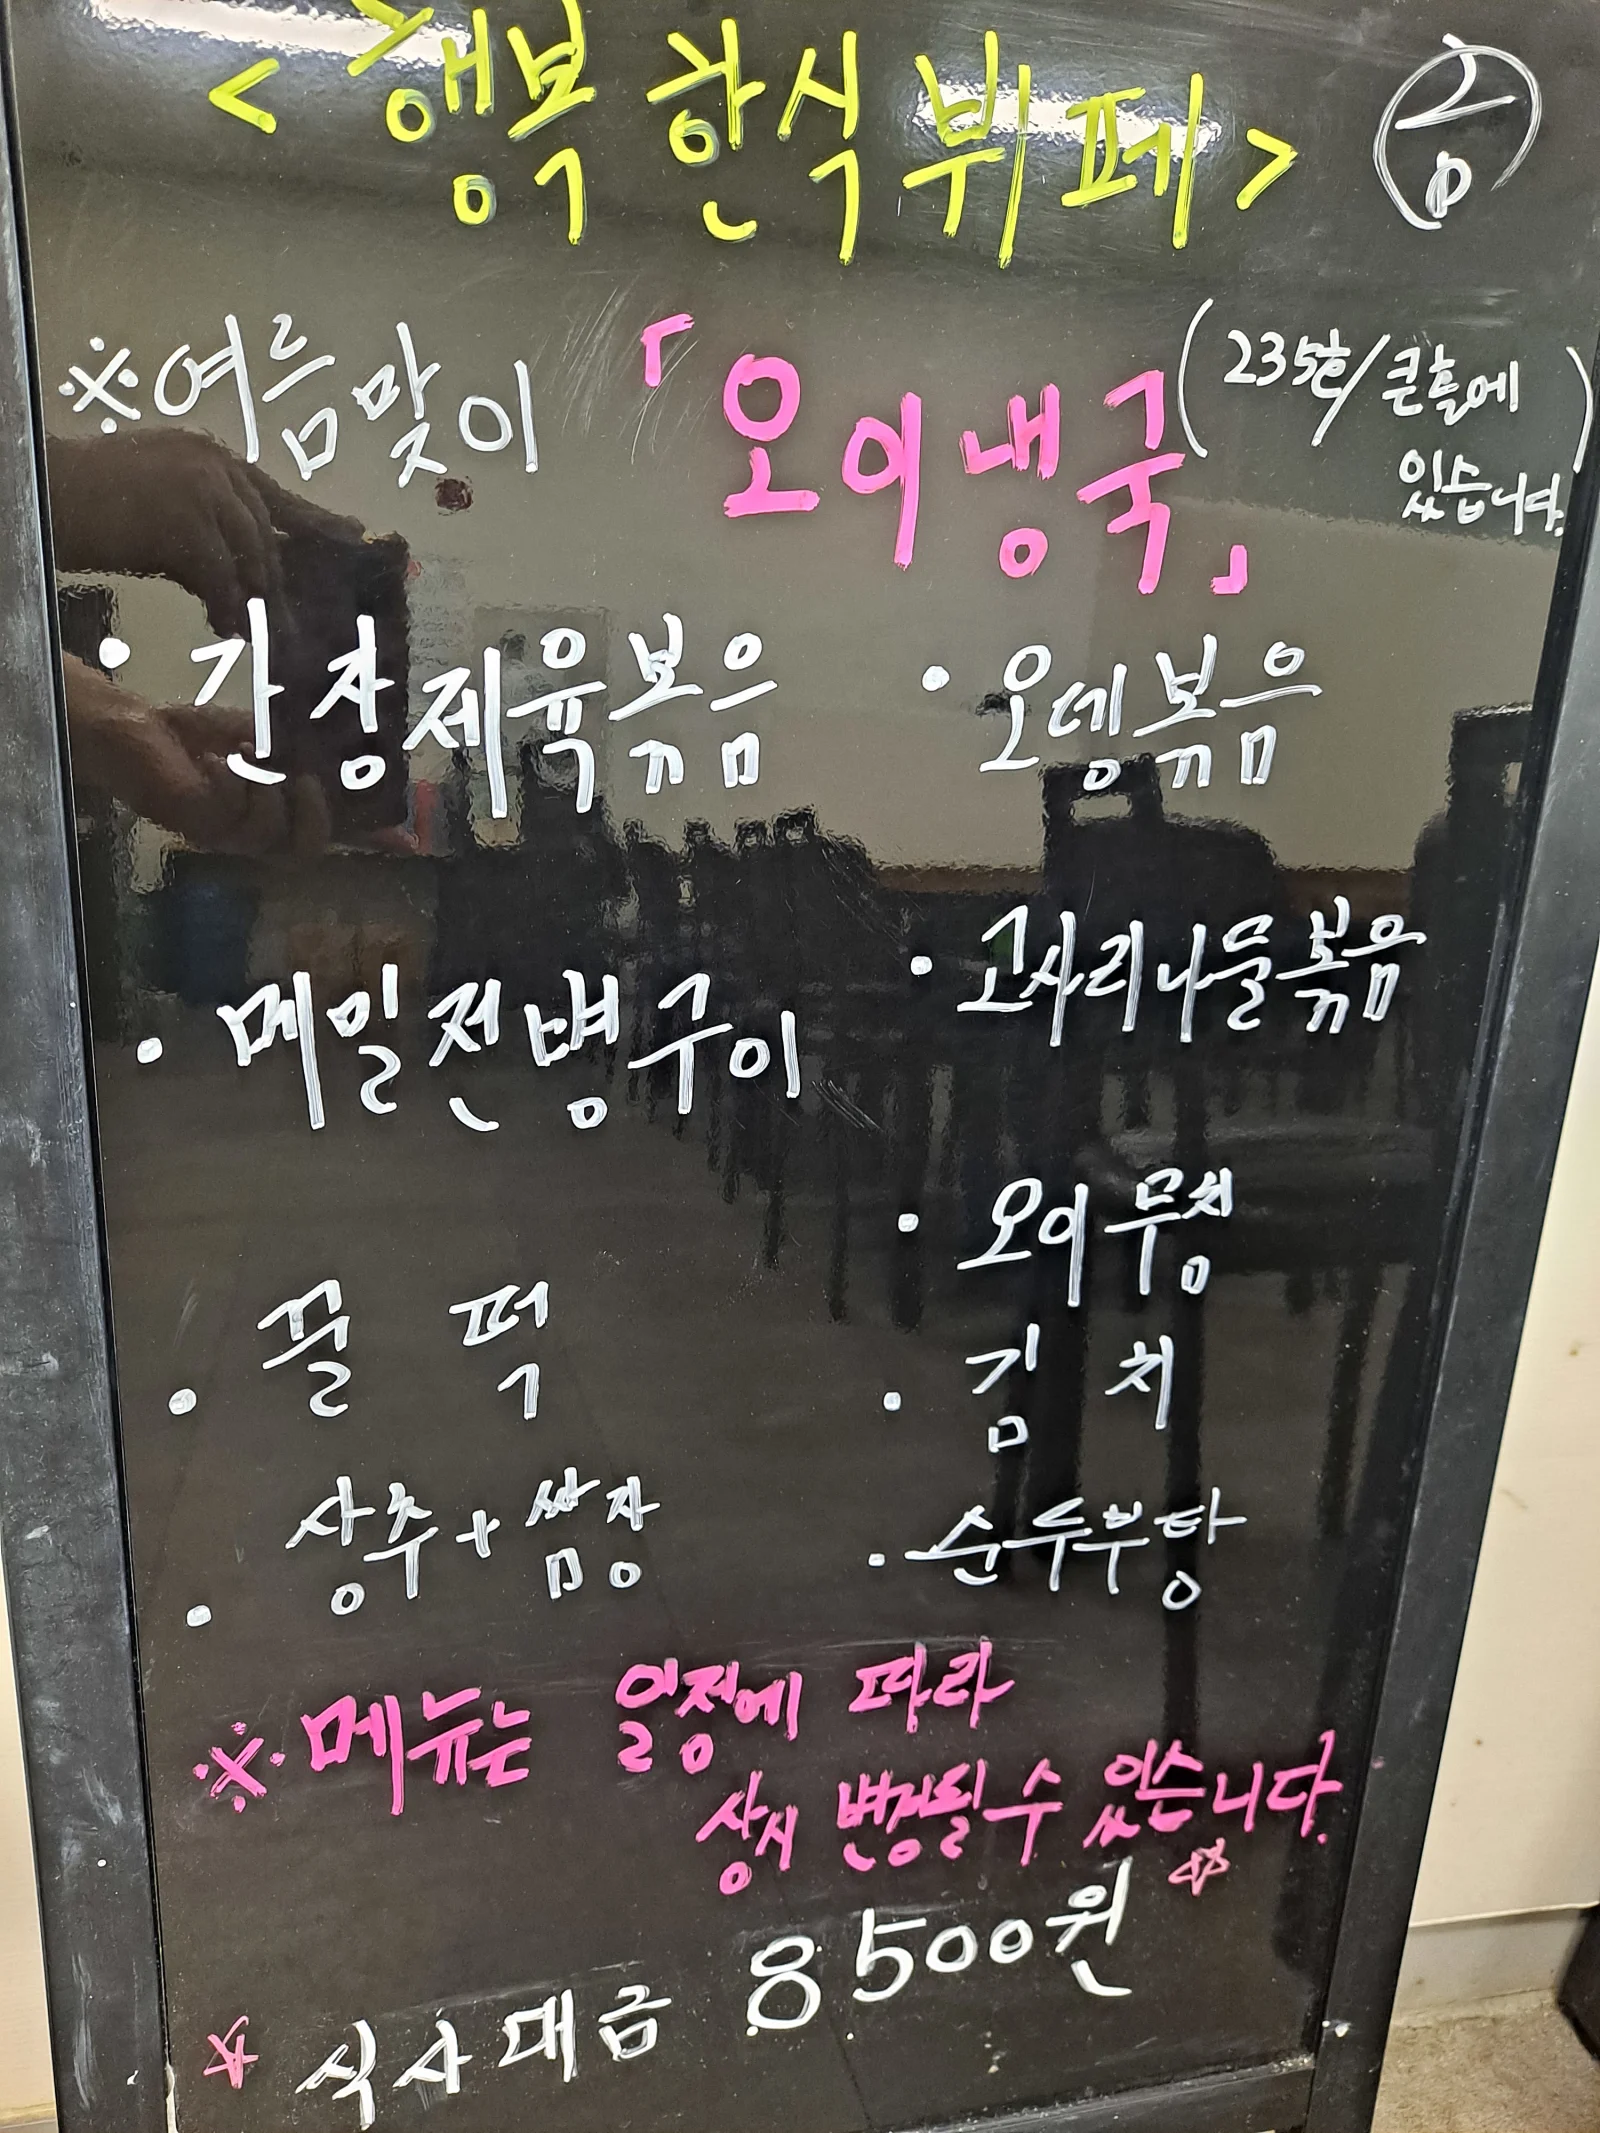 <행복 한식 뷔페> 금
※여름맞이 「오이냉국」 (235호/큰홀에
있습니다.)
· 간장제육볶음
· 오뎅볶음
· 메밀전병구이
· 고사리나물볶음
· 오이무침
· 꿀떡
· 김치
· 상추+쌈장
· 순두부탕
※메뉴는 일정에 따라
상시 변경될 수 있습니다.
☆ 식사대금 8500원 ☆